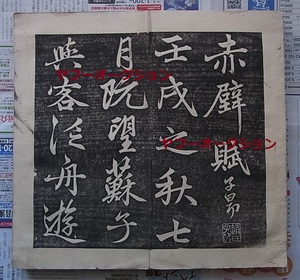 赤壁賦
子昂
壬戌之秋七
月既望蘇子
與客泛舟遊
ヤフーオークション
ヤフーオークション